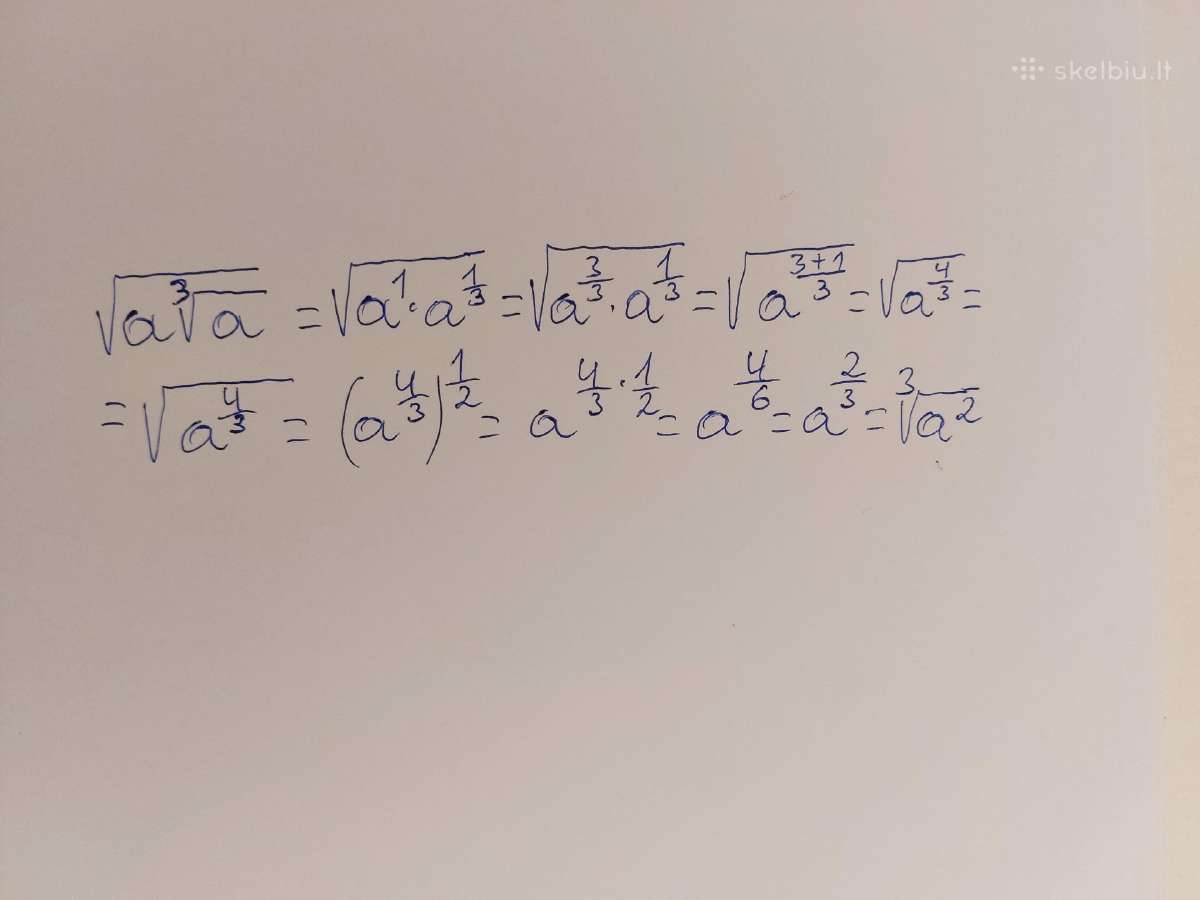 skelbiu.lt
√(a∛a) = √(a¹·a^(1/3)) = √(a^(3/3)·a^(1/3)) = √(a^((3+1)/3)) = √(a^(4/3)) =
= √(a^(4/3)) = (a^(4/3))^(1/2) = a^(4/3·1/2) = a^(4/6) = a^(2/3) = ∛(a²)